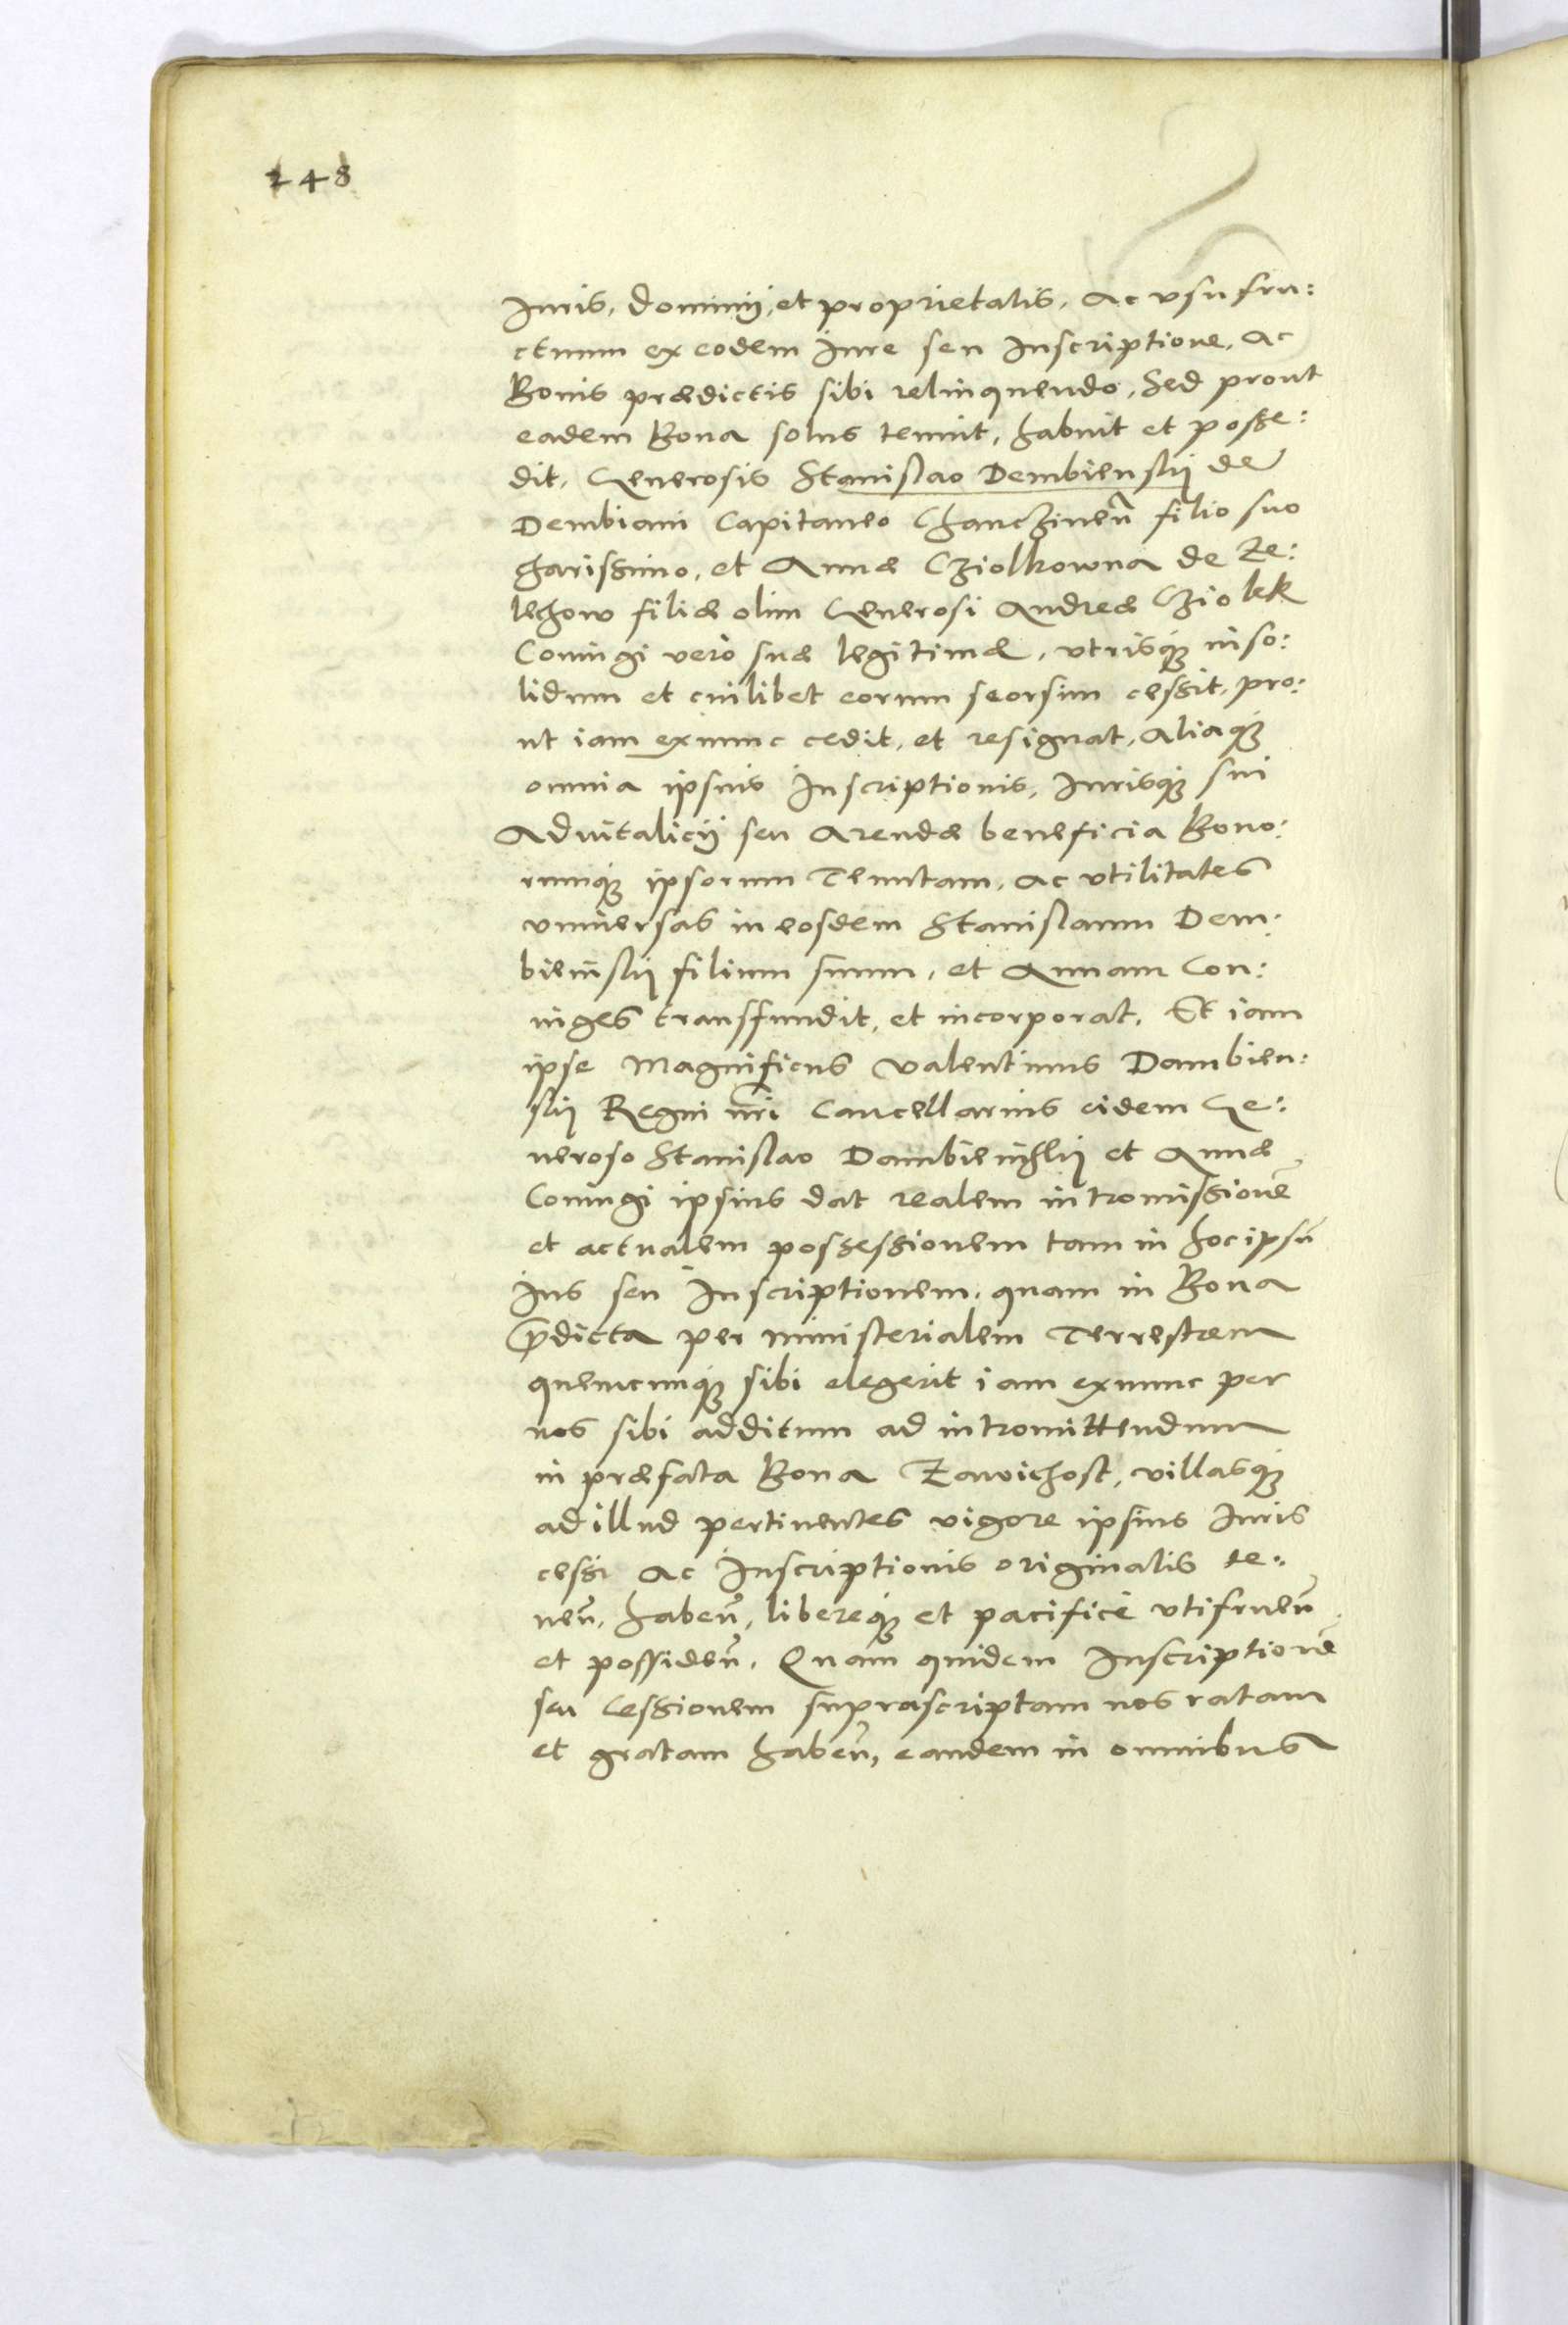 248
Iuris, dominii, et proprietatis, ac vsufru:
ctuum ex eodem iure seu inscriptione, ac
Bonis prædictis sibi relinquendo, Sed prout
eadem Bona solus tenuit, habuit et posse:
dit, Generosis Stanislao Dembienskij de
Dembiani Capitaneo Chanczineñ filio suo
charissimo, et Annæ Cziolkowna de Ze:
lechow filiæ olim Generosi Andreæ Cziolek
Coniugi verò suæ legitimæ, vtrisque inso:
lidum et cuilibet eorum seorsim cessit, pro:
ut iam exnunc cedit, et resignat, aliaque
omnia ipsius Inscriptionis, Iurisque sui
Aduitalicij seu Arendæ beneficia Bono:
rumque ipsorum Tenutam, ac vtilitates
vniuersas in eosdem Stanislaum Dem:
bienskij filium suum, et Annam Con:
iuges transfundit, et incorporat. Et iam
ipse Magnificus Valentinus Dambien:
skij Regni nri Cancellarius eidem Ge:
neroso Stanislao Dambienskij et Annæ
Coniugi ipsius dat realem intromissionē
et actualem possessionem tam in hoc ipsū
ius seu Inscriptionem, quam in Bona
p̄dicta per ministerialem Terrestrem
quemcunque sibi elegerit iam exnunc per
nos sibi additum ad intromittendum
in præfata Bona Zawichost, villasque
ad illud pertinentes vigore ipsius Iuris
cessi ac Inscriptionis originalis te:
neñ, habeñ, libereque et pacificè vtifrueñ
et possideñ. Quam quidem Inscriptionē
seu Cessionem suprascriptam nos ratam
et gratam habeñ, eandem in omnibus